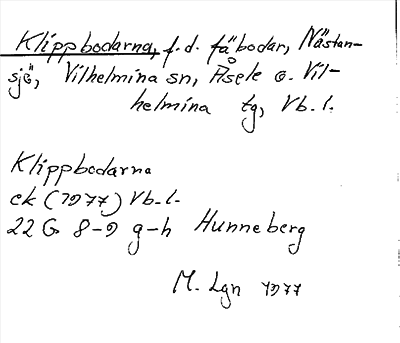 Klippbodarna, f.d. fäbodar, Nästan-
sjö, Vilhelmina sn, Åsele o. Vil-
helmina tg, Vb.l.
Klippbodarna
ek (1977) Vb.l.
22 G 8-9 g-h Hunneberg
M. Lgn 1977